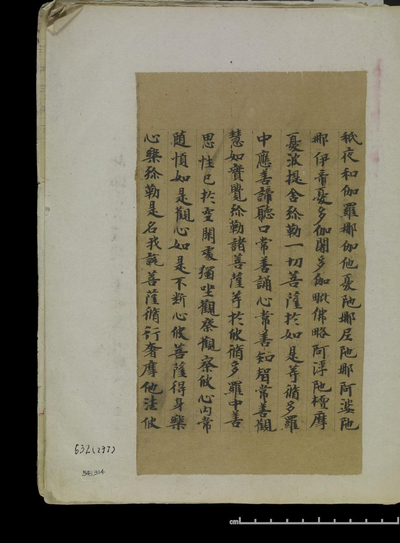 秖夜和伽羅那伽他憂陁那尼陁那阿波陁
那伊帝憂多伽闍多伽毗佛略阿浮陁檀摩
憂波提舍弥勒一切菩薩於如是等脩多羅
中應善諦聽口常善誦心常善知智常善觀
慧如實覺弥勒諸菩薩等於彼脩多羅中善
思惟已於空閑處獨坐觀察觀察彼心内常
随順如是觀心如是不断心彼菩薩得身樂
心樂弥勒是名我説菩薩脩行奢摩他法彼
632(297)